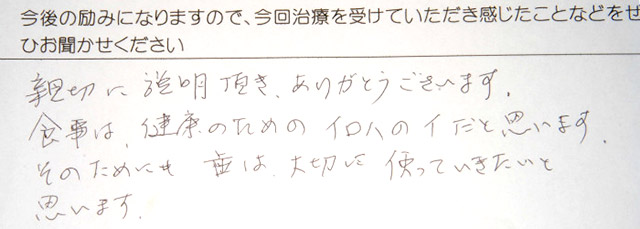 今後の励みになりますので、今回治療を受けていただき感じたことなどをぜ
ひお聞かせください
親切に説明頂き、ありがとうございます。
食事は、健康のためのイロハのイだと思います。
そのためにも歯は、大切に使っていきたいと
思います。